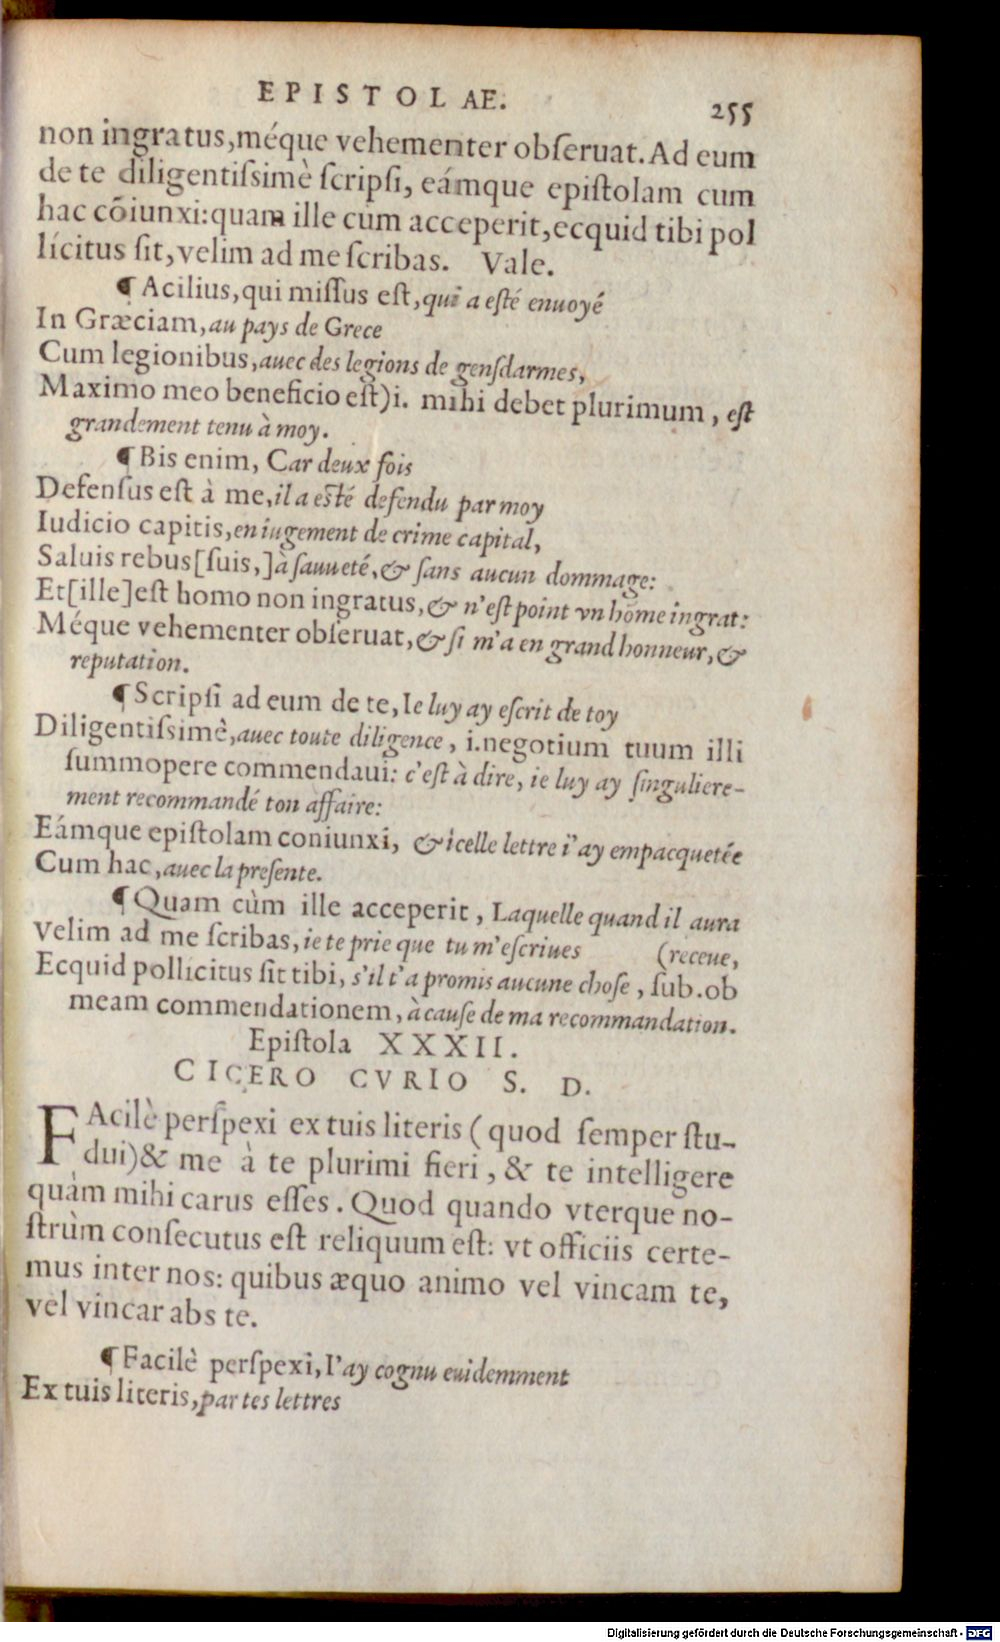 EPISTOLAE. 255
non ingratus, méque vehementer obſeruat. Ad eum
de te diligentiſsimè ſcripſi, eámque epiſtolam cum
hac cōiunxi: quam ille cum acceperit, ecquid tibi pol
lícitus ſit, velim ad me ſcribas. Vale.
¶ Acilius, qui miſſus eſt, qui a eſté enuoyé
In Græciam, au pays de Grece
Cum legionibus, auec des legions de genſdarmes,
Maximo meo beneficio eſt) i. mihi debet plurimum, eſt
grandement tenu à moy.
¶ Bis enim, Car deux fois
Defenſus eſt à me, il a eſté defendu par moy
Iudicio capitis, en iugement de crime capital,
Saluis rebus [ſuis,] à ſauueté, & ſans aucun dommage:
Et [ille] eſt homo non ingratus, & n'eſt point vn hōme ingrat:
Méque vehementer obſeruat, & ſi m'a en grand honneur, &
reputation.
¶ Scripſi ad eum de te, Ie luy ay eſcrit de toy
Diligentiſsimè, auec toute diligence, i. negotium tuum illi
ſummopere commendaui: c'eſt à dire, ie luy ay ſinguliere-
ment recommandé ton affaire:
Eámque epiſtolam coniunxi, & icelle lettre i'ay empacquetée
Cum hac, auec la preſente.
¶ Quam cùm ille acceperit, Laquelle quand il aura
Velim ad me ſcribas, ie te prie que tu m'eſcriues (receue,
Ecquid pollicitus ſit tibi, s'il t'a promis aucune choſe, ſub. ob
meam commendationem, à cauſe de ma recommandation.
Epiſtola XXXII.
CICERO CVRIO S. D.
FAcilè perſpexi ex tuis literis (quod ſemper ſtu-
dui) & me à te plurimi fieri, & te intelligere
quàm mihi carus eſſes. Quod quando vterque no-
ſtrùm conſecutus eſt reliquum eſt: vt officiis certe-
mus inter nos: quibus æquo animo vel vincam te,
vel vincar abs te.
¶ Facilè perſpexi, I'ay cognu euidemment
Ex tuis literis, par tes lettres
Digitalisierung gefördert durch die Deutsche Forschungsgemeinschaft - DFG